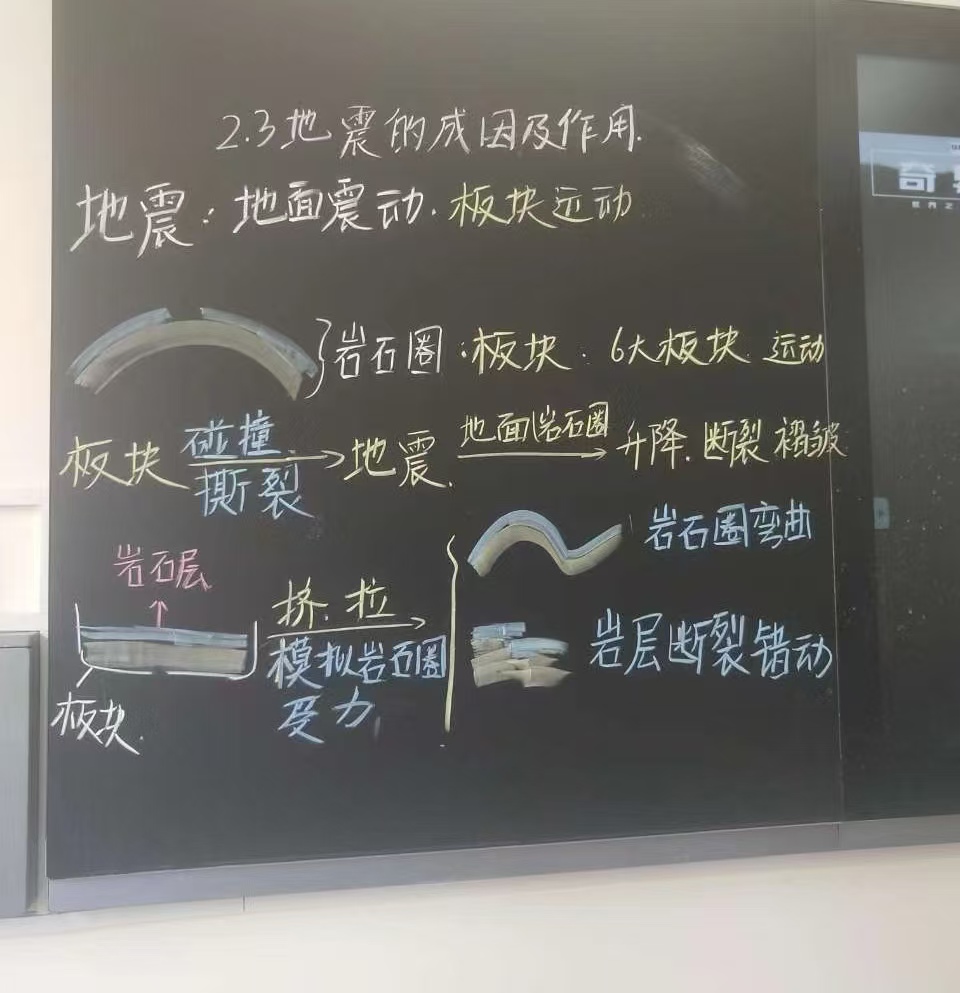 2.3地震的成因及作用.
地震：地面震动.板块运动
岩石圈：板块.6大板块 运动
板块 碰撞. 撕裂 地震. 地面岩石圈 升降.断裂 褶皱
岩石层
板块.
挤.拉
模拟岩石圈
受力
岩石圈弯曲
岩层断裂错动
奇